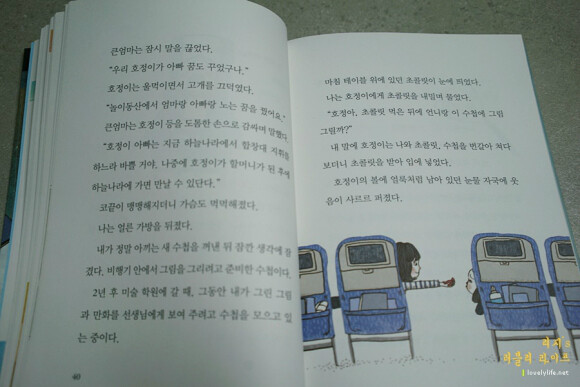 큰엄마는 잠시 말을 끊었다.
“우리 호정이가 아빠 꿈도 꾸었구나.”
호정이는 울먹이면서 고개를 끄덕였다.
“놀이동산에서 엄마랑 아빠랑 노는 꿈을 꿨어요.”
큰엄마는 호정이 등을 도톰한 손으로 감싸며 말했다.
“호정이 아빠는 지금 하늘나라에서 합창대 지휘를
하느라 바쁠 거야. 나중에 호정이가 할머니가 된 후에
하늘나라에 가면 만날 수 있단다.”
코끝이 맹맹해지더니 가슴도 먹먹해졌다.
나는 얼른 가방을 뒤졌다.
내가 정말 아끼는 새 수첩을 꺼낸 뒤 잠깐 생각에 잠
겼다. 비행기 안에서 그림을 그리려고 준비한 수첩이다.
2년 후 미술 학원에 갈 때, 그동안 내가 그린 그림
과 만화를 선생님에게 보여 주려고 수첩을 모으고 있
는 중이다.
40
마침 테이블 위에 있던 초콜릿이 눈에 띄었다.
나는 호정이에게 초콜릿을 내밀며 물었다.
“호정아, 초콜릿 먹은 뒤에 언니랑 이 수첩에 그림
그릴까?”
내 말에 호정이는 나와 초콜릿, 수첩을 번갈아 쳐다
보더니 초콜릿을 받아 입에 넣었다.
호정이의 볼에 얼룩처럼 남아 있던 눈물 자국에 웃
음이 사르르 퍼졌다.
리지's
러블리 라이프
lovelylife.net